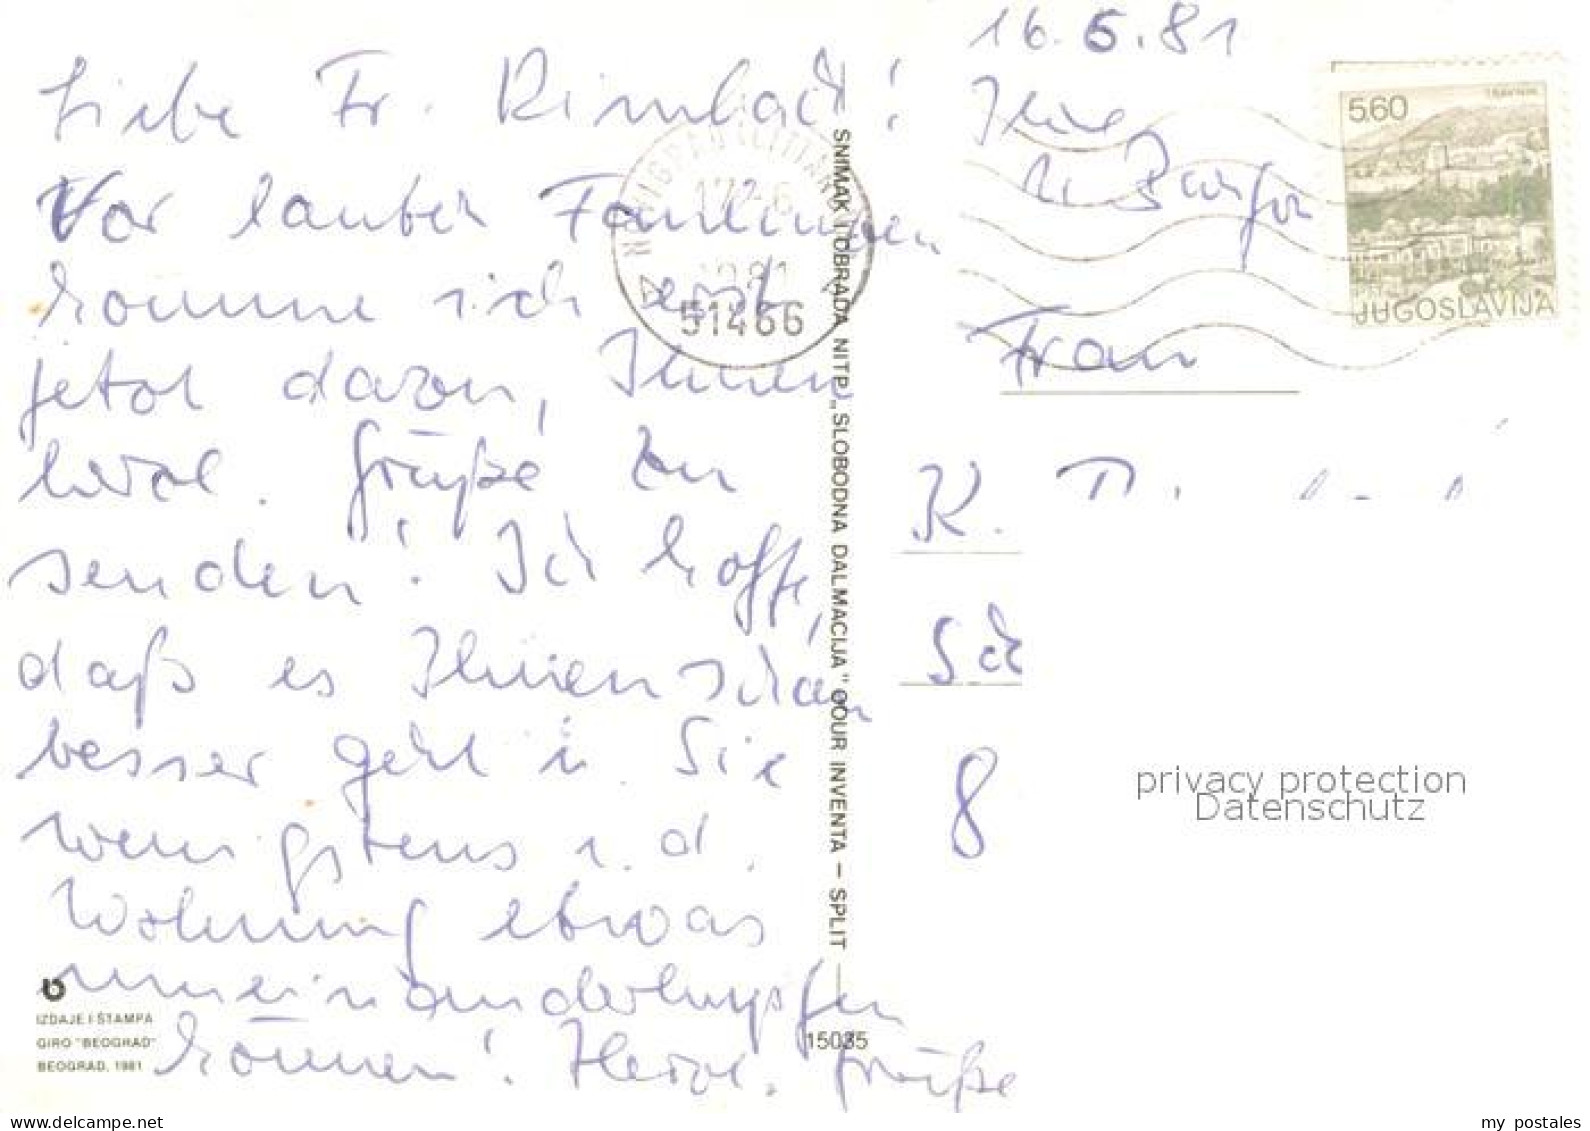 16.6.81
Liebe Fr. Rimbach!
Vor lauter Faulenzen
komme ich erst
jetzt davon, Ihnen
herzl. Grüße zu
senden! Ich hoffe,
daß es Ihnen schon
besser geht u. Sie
wenigstens i. d.
Wohnung etwas
umeinanderhupfen
können! Herzl. Grüße
Ihre
Frau
K.
Sch
8
17.-6
1981
51466
5.60
TRAVNIK
JUGOSLAVIJA
SNIMAK I OBRADA NITP „SLOBODNA DALMACIJA" OOUR INVENTA – SPLIT
IZDAJE I ŠTAMPA
GIRO "BEOGRAD"
BEOGRAD, 1981
15035
privacy protection
Datenschutz
my postales